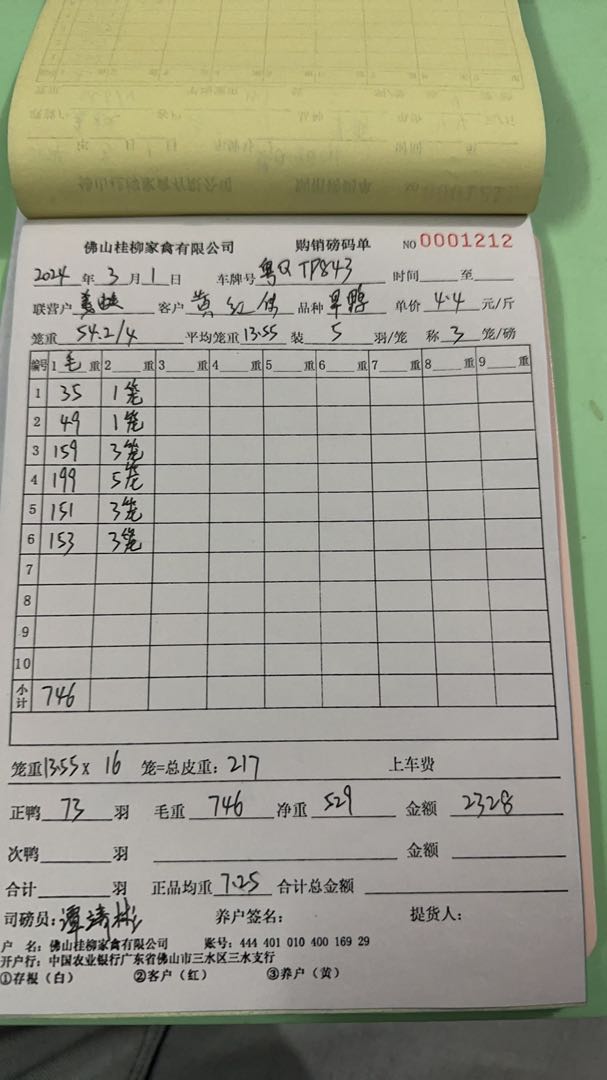 佛山桂柳家禽有限公司 购销磅码单 NO 0001212
2024 年 3 月 1 日 车牌号 粤Q TP843 时间 至
联营户 客户 黄红 品种 旱鸭 单价 4.4 元/斤
笼重 54.2/4 平均笼重 13.55 装 5 羽/笼 称 3 笼/磅
编号 1 毛 重 2 重 3 重 4 重 5 重 6 重 7 重 8 重 9 重
1 35 1笼
2 49 1笼
3 159 3笼
4 199 5笼
5 151 3笼
6 153 3笼
7
8
9
10
小计 746
笼重 13.55 x 16 笼=总皮重: 217 上车费
正鸭 73 羽 毛重 746 净重 529 金额 2328
次鸭 羽 金额
合计 羽 正品均重 7.25 合计总金额
司磅员: 谭 彬 养户签名: 提货人:
户 名: 佛山桂柳家禽有限公司 账号: 444 401 010 400 169 29
开户行: 中国农业银行广东省佛山市三水区三水支行
①存根（白） ②客户（红） ③养户（黄）